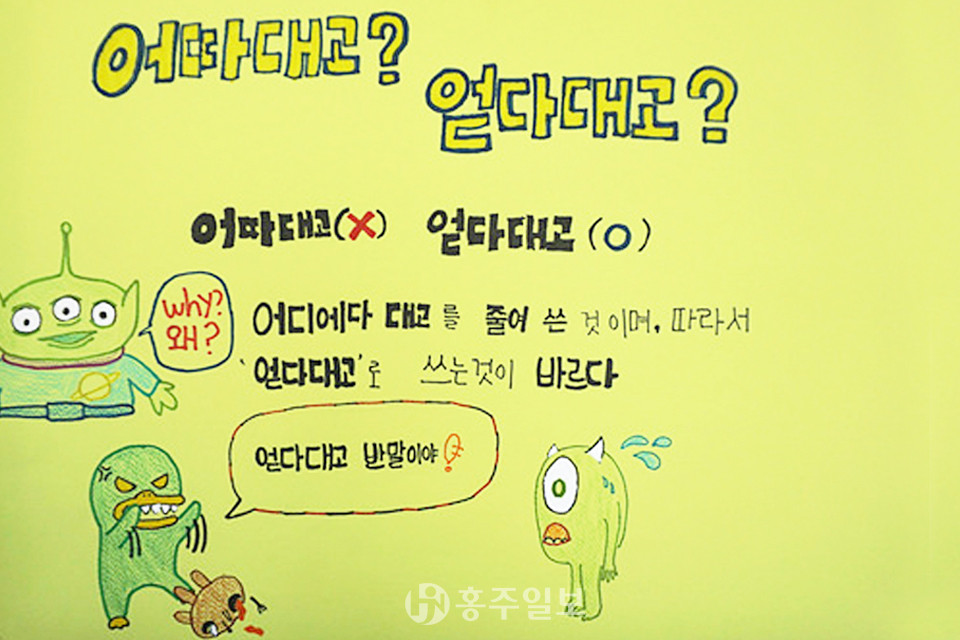 어따대고?
얻다대고?
어따대고(X) 얻다대고(O)
why?
왜?
어디에다 대고를 줄여 쓴 것이며, 따라서
'얻다대고'로 쓰는것이 바르다
얻다대고 반말이야?
홍주일보